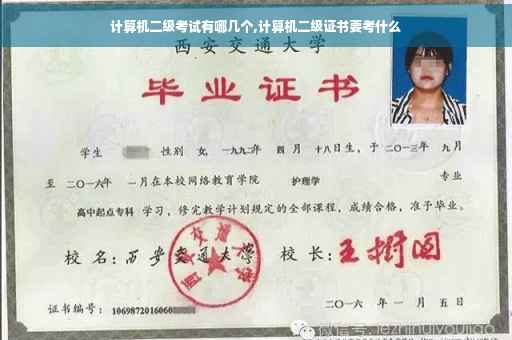 计算机二级考试有哪几个,计算机二级证书要考什么
西安交通大学
毕业证书
学生 性别 女, 一九九二年 四 月 十八日生, 于 二〇一三年 九月
至 二〇一六年 一月在本校网络教育学院 护理学 专业
高中起点专科 学习, 修完教学计划规定的全部课程, 成绩合格, 准予毕业。
校 名: 西安交通大学 校 长: 王树国
西安交通大学
证书编号: 1069872016060
二〇一六 年 一 月 五 日
微信号: jezhinuiyoujiao